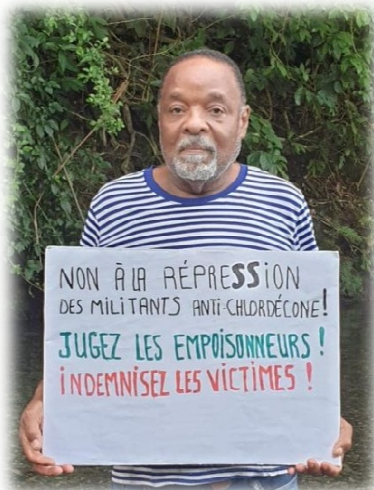 NON À LA RÉPRESSiON
DES MILITANTS ANTI-CHLORDÉCONE!
JUGEZ LES EMPOISONNEURS !
iNDEMNISEZ LES VICTIMES !